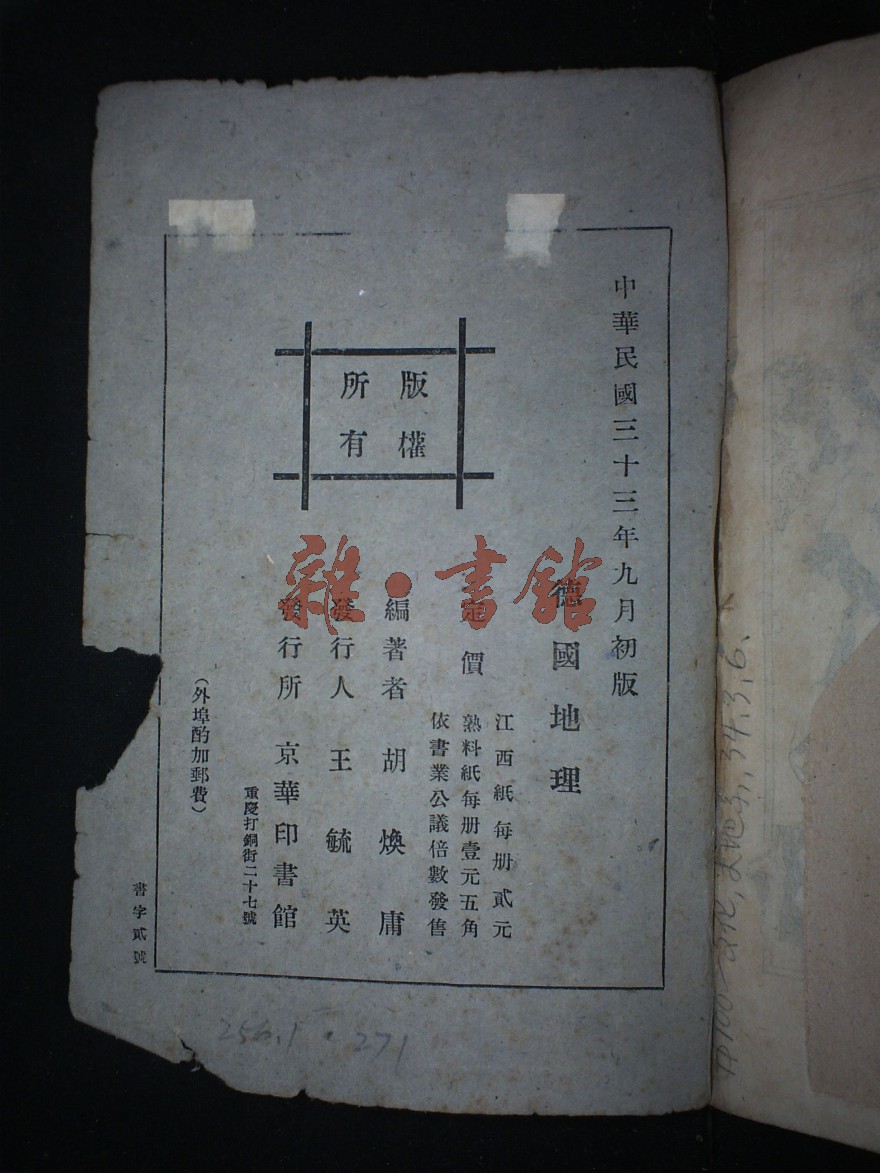 中華民國三十三年九月初版
德國地理
定價
江西紙每册貳元
熟料紙每册壹元五角
依書業公議倍數發售
編著者 胡煥庸
發行人 王毓英
發行所 京華印書館
重慶打銅街二十七號
(外埠酌加郵費)
版權
所有
書字貳號
雜·書館
256.1·271
34.3.6.